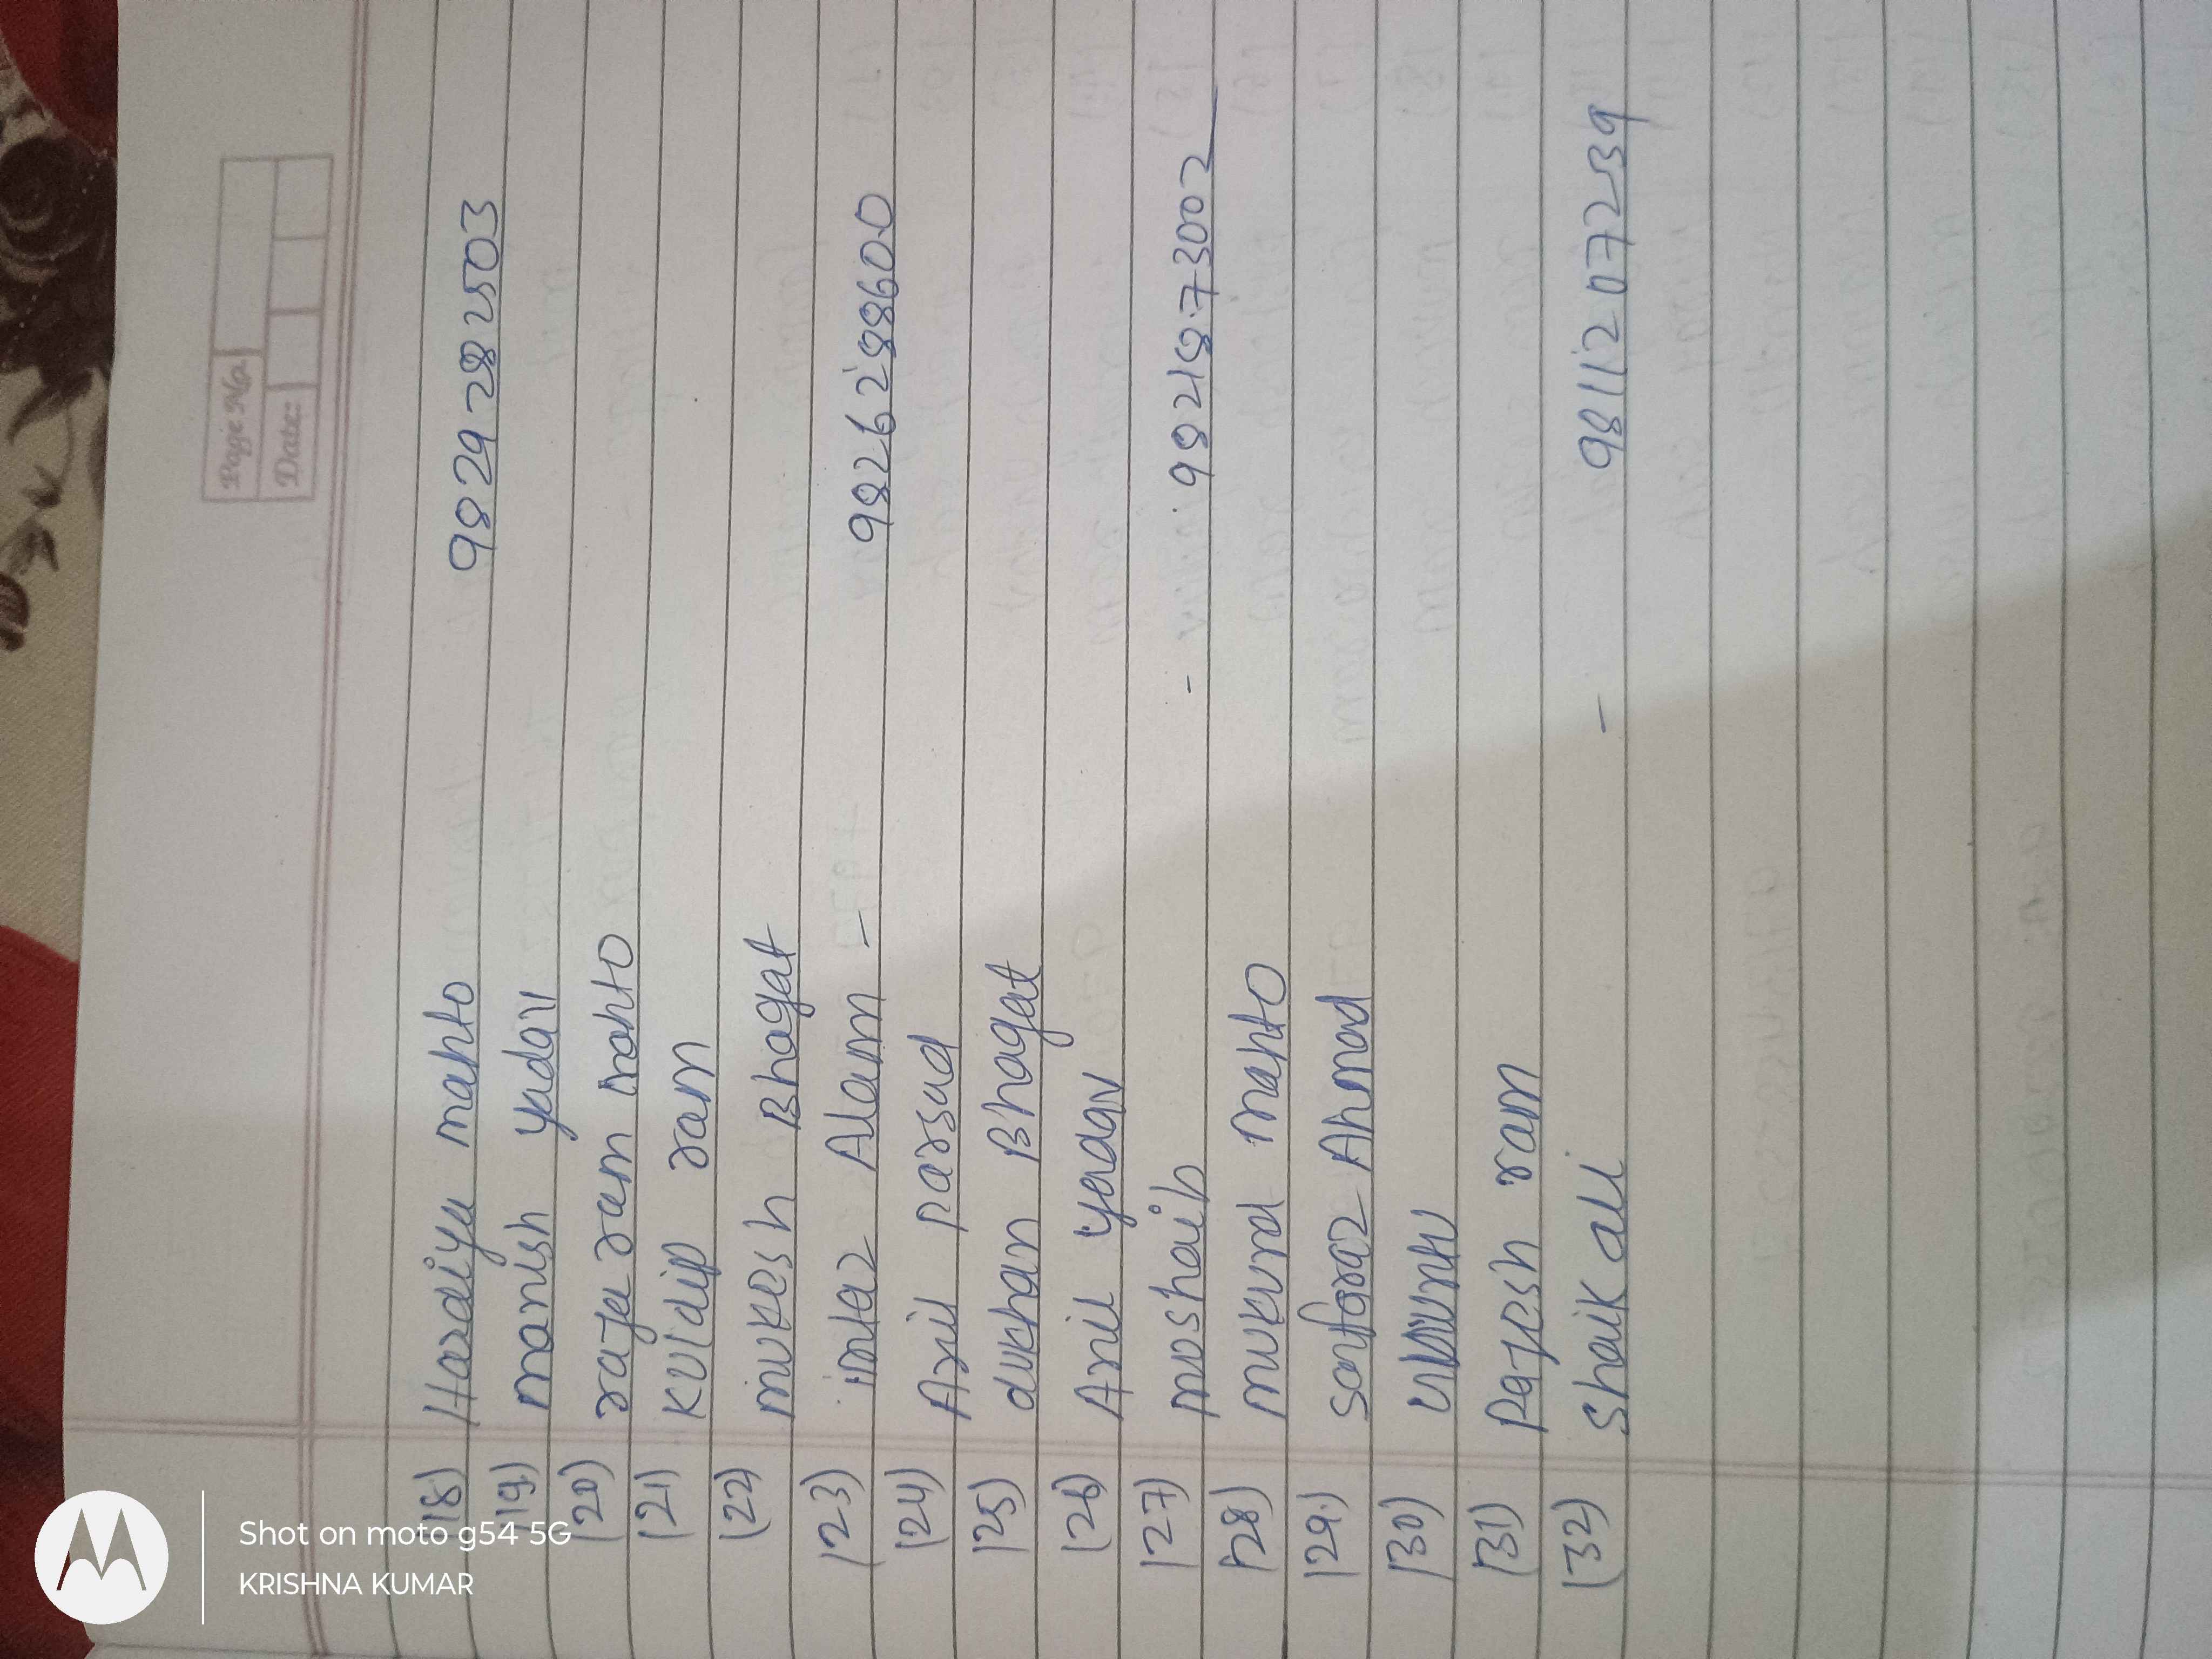 Page No.
Date:
(18) Hardiya mahto 9829282503
(19) manish yadav
(20) raja ram mahto
(21) Kuldip ram
(22) mukesh Bhagat
(23) imtaz Alam - 9826288600
(24) Anil parsad
(25) dukhan Bhagat
(26) Anil yadav
(27) moshaib - 9821873002
(28) mukund mahto
(29) sarfaraz Ahmad
(30)
(31) Rajesh ram
(32) Shaik ali - 9811207239
Shot on moto g54 5G
KRISHNA KUMAR